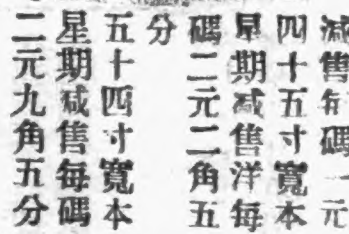 減售每碼一元
四十五寸寬本
星期減售洋每
碼二元二角五
分
五十四寸寬本
星期減售每碼
二元九角五分